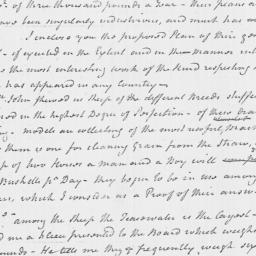 of three thousand pounds a Year – their plans a
have been singularly industrious, and much has
I enclose you the proposed Plan of this
– if executed in the Extent and in the Manner
is the most interesting work of the kind respecting
has appeared in any Country –
John shewed us sheep of the different Breeds
in the highest Degree of Perfection – of
models are collecting of the most useful
them is one for cleaning Grain from the Straw,
of two Horses a man and a Boy will
Bushells pr Day – they begin to be in use among
which I consider as a Proof of their
among the sheep the Teeswater is the Largest –
me a presented to the Board which
– He tells me they frequently weigh